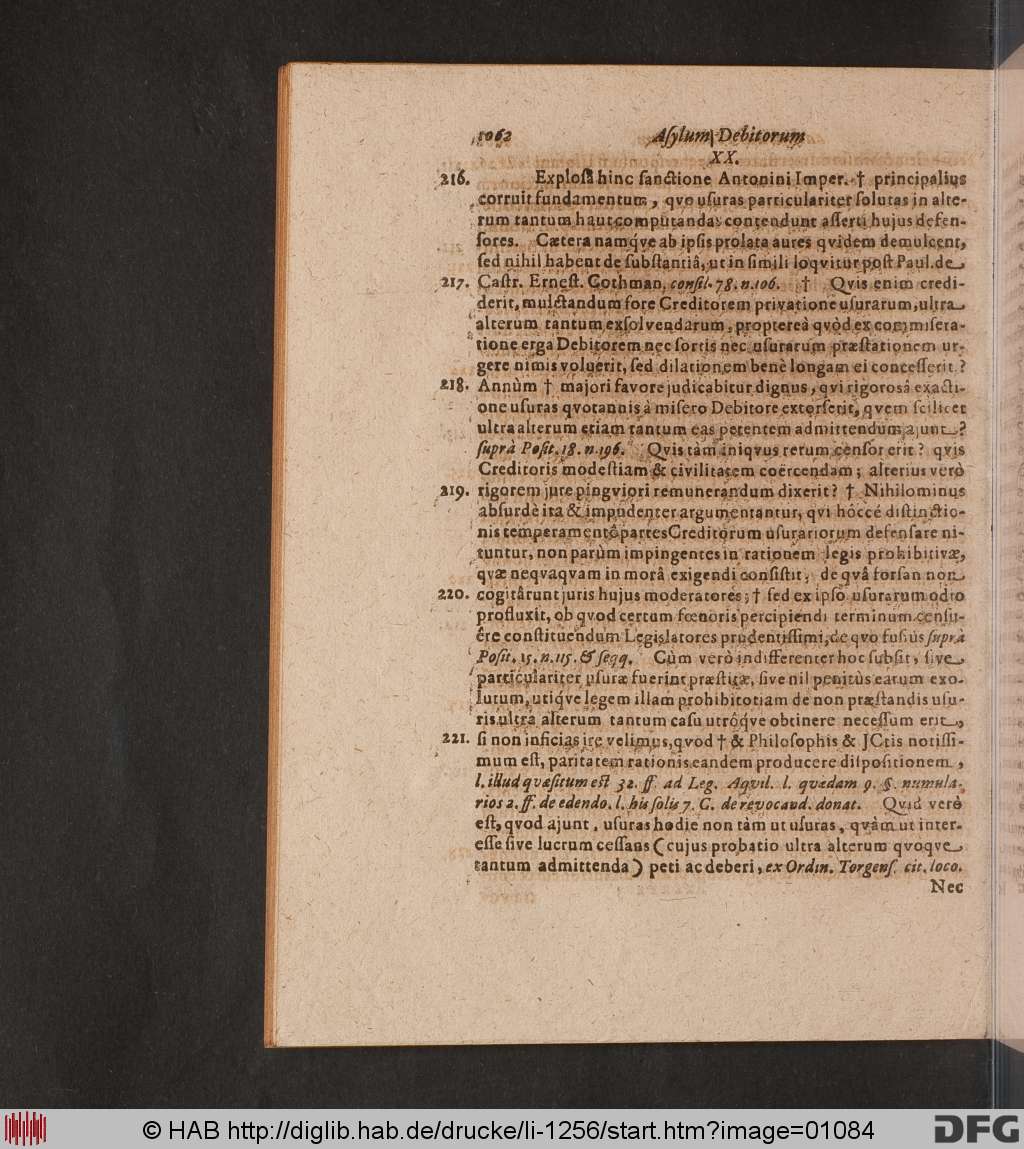 1062 Aſylum Debitorum
XX.
216. Exploſâ hinc ſanctione Antonini Imper. † principalius
corruit fundamentum, qvo uſuras particulariter ſolutas in alte-
rum tantum haut computandas contendunt aſſerti hujus defen-
ſores. Cætera namq́ve ab ipſis prolata aures qvidem demulcent,
ſed nihil habent de ſubſtantiâ, ut in ſimili loqvitur poſt Paul. de
217. Caſtr. Erneſt. Cothman, conſil. 78. n. 106. † Qvis enim credi-
derit, mulctandum fore Creditorem privatione uſurarum, ultra
alterum tantum exſolvendarum, propterea qvòd ex commiſera-
tione erga Debitorem nec ſortis nec uſurarum præſtationem ur-
gere nimis voluerit, ſed dilationem benè longam ei conceſſerit?
218. Annùm † majori favore judicabitur dignus, qvi rigorosâ exacti-
one uſuras qvotannis à miſero Debitore extorſerit, qvem ſcilicet
ultra alterum etiam tantum eas petentem admittendum ajunt?
ſuprà Poſit. 18. n. 196. Qvis tàm iniqvus rerum cenſor erit? qvis
Creditoris modeſtiam & civilitatem coërcendam; alterius verò
219. rigorem jure pingviori remunerandum dixerit? † Nihilominus
abſurdè ita & impudenter argumentantur, qvi hôccé diſtinctio-
nis temperamentô partes Creditorum uſurariorum defenſare ni-
tuntur, non parùm impingentes in rationem legis prohibitivæ,
qvæ neqvaqvam in morâ exigendi conſiſtit, de qvâ forſan non
220. cogitârunt juris hujus moderatores; † ſed ex ipſo uſurarum odio
profluxit, ob qvod certum fœnoris percipiendi terminum cenſu-
êre conſtituendum Legislatores prudentiſſimi, de qvo fuſiùs ſuprà
Poſit. 15. n. 115. & ſeqq. Cùm verò indifferenter hoc ſubſit, ſive
particulariter uſuræ fuerint præſtitæ, ſive nil penitùs earum exo-
lutum, utiq́ve legem illam prohibitotiam de non præſtandis uſu-
ris ultra alterum tantum caſu utrôq́ve obtinere neceſſum erit,
221. ſi non inficias ire velimus, qvod † & Philoſophis & JCtis notiſſi-
mum eſt, paritatem rationis eandem producere diſpoſitionem,
l. illud quæſitum eſt 32. ff. ad Leg. Aqvil. l. quædam 9. §. numula-
rios 2. ff. de edendo. l. his ſolis 7. C. de revocand. donat. Qvid verò
eſt, qvod ajunt, uſuras hodie non tàm ut uſuras, qvàm ut inter-
eſſe ſive lucrum ceſſans (cujus probatio ultra alterum qvoqve
tantum admittenda) peti ac deberi, ex Ordin. Torgenſ. cit. loco.
Nec
© HAB http://diglib.hab.de/drucke/li-1256/start.htm?image=01084
DFG